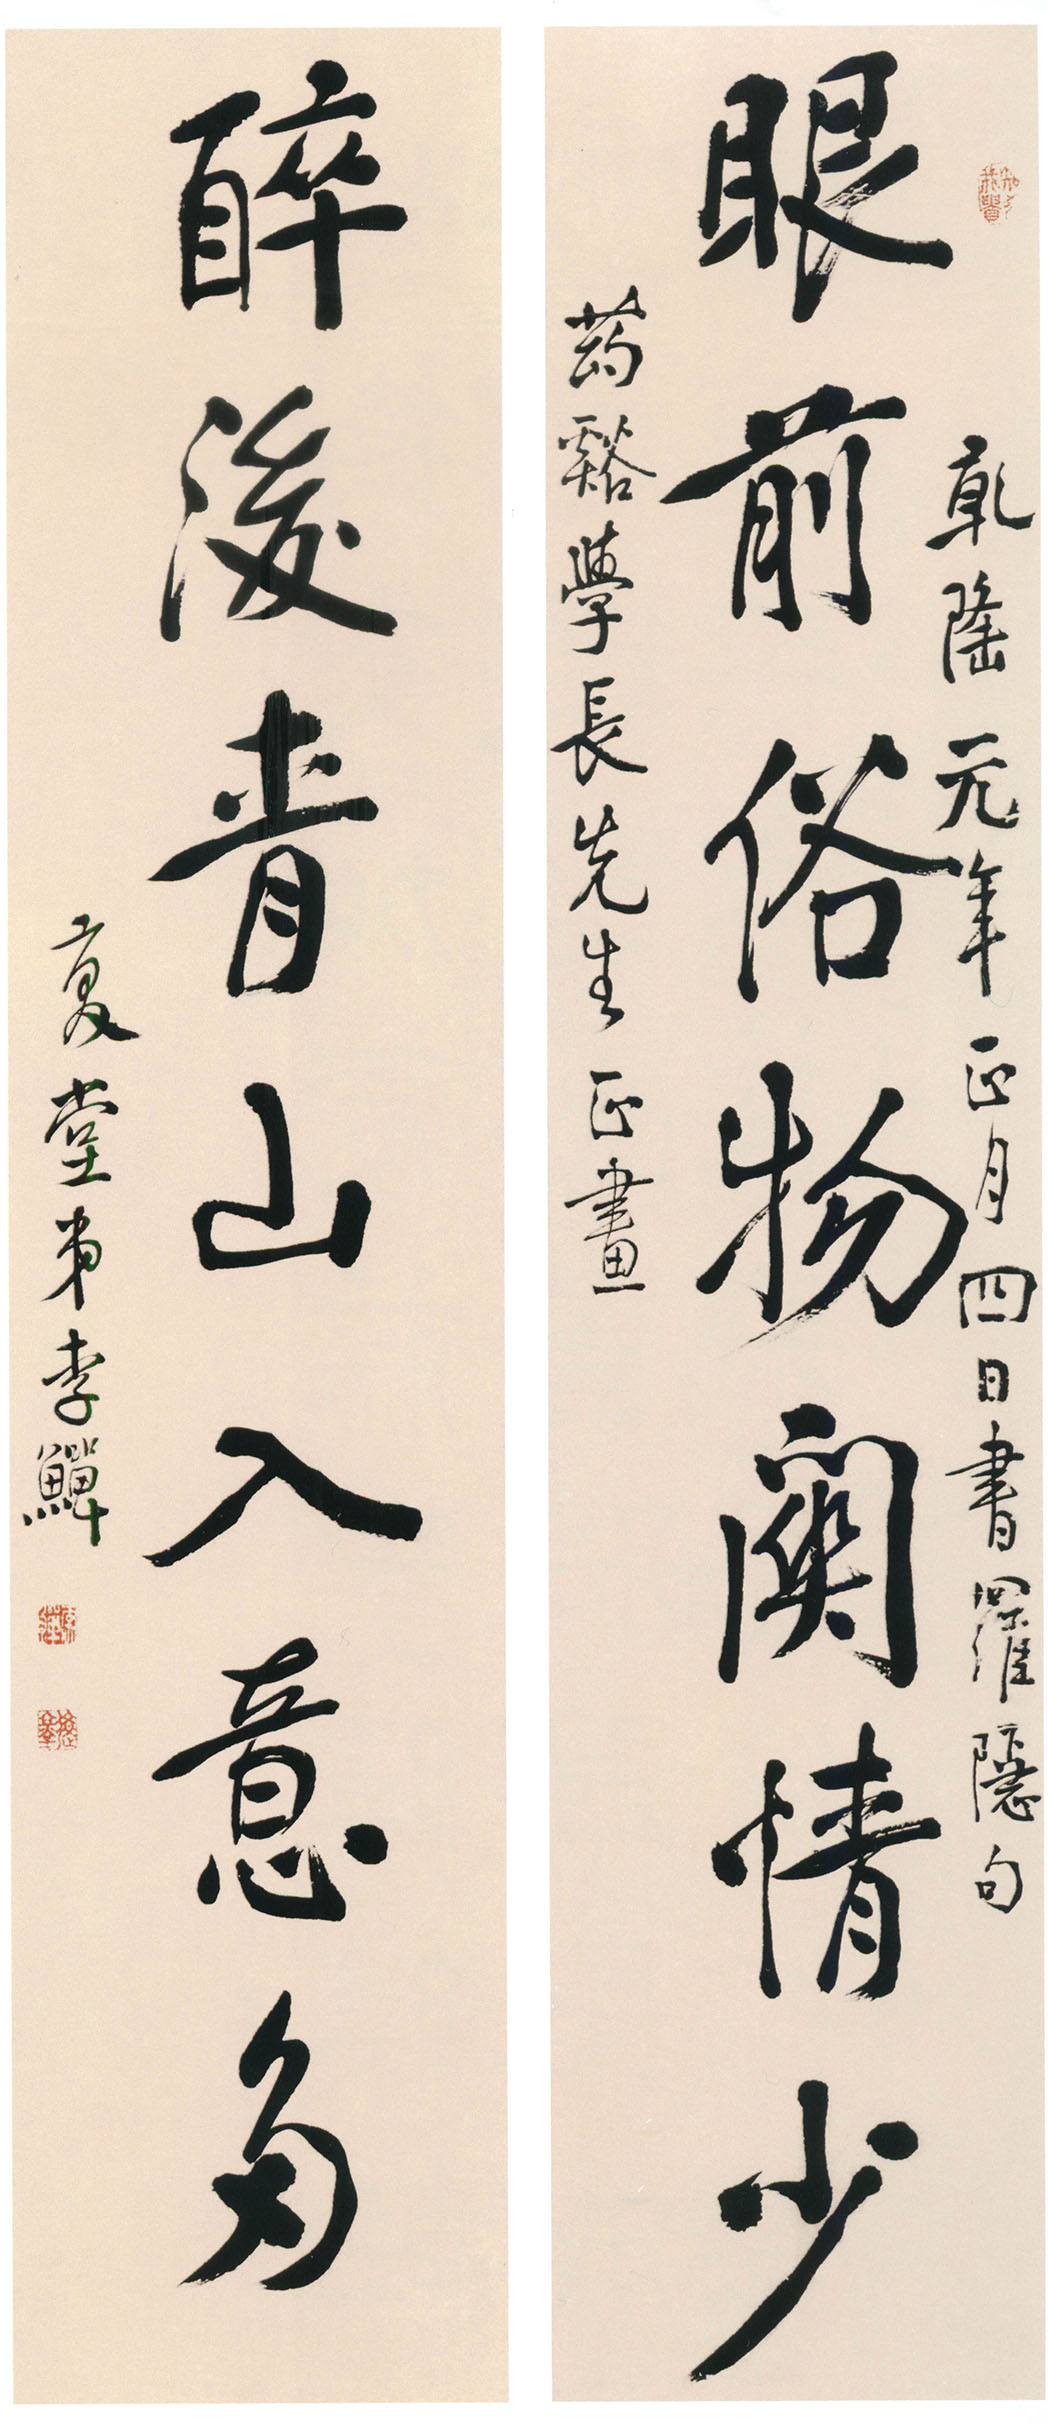 乾隆元年正月四日書羅隱句
眼前俗物關情少
药谿學長先生正畫
醉後青山入意多
復堂弟李鱓